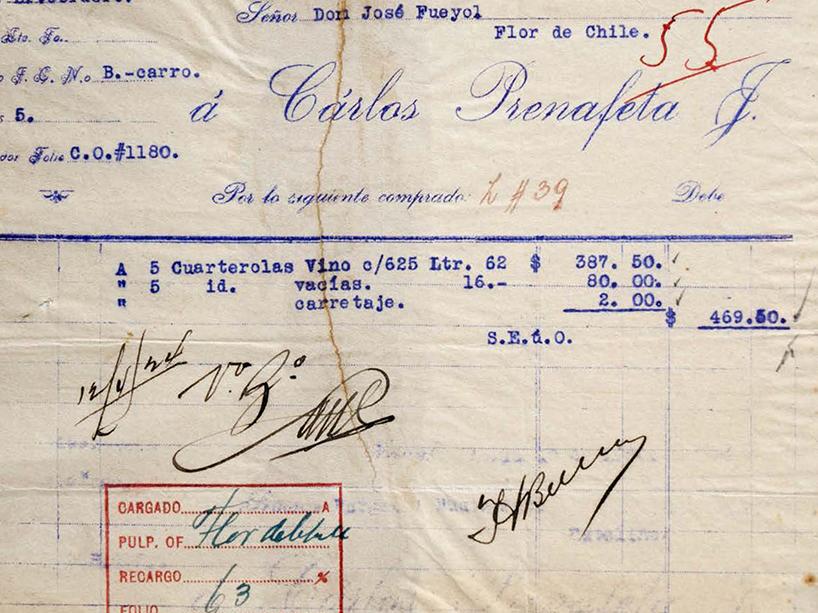 Señor Don José Fueyol
Flor de Chile.
55
F. C. N.o B.-carro.
5.
á Cárlos Prenafeta J.
Folio C.O.#1180.
Por lo siguiente comprado: L # 39 Debe
A 5 Cuarterolas Vino c/625 Ltr. 62 $ 387. 50.
" 5 id. vacías. 16.- 80. 00.
" carretaje. 2. 00.
$ 469.50.
S.E.ú.O.
12/4/24 Vo. Bo.
CARGADO A
PULP. OF. Flor de Chile
RECARGO 63 %
FOLIO